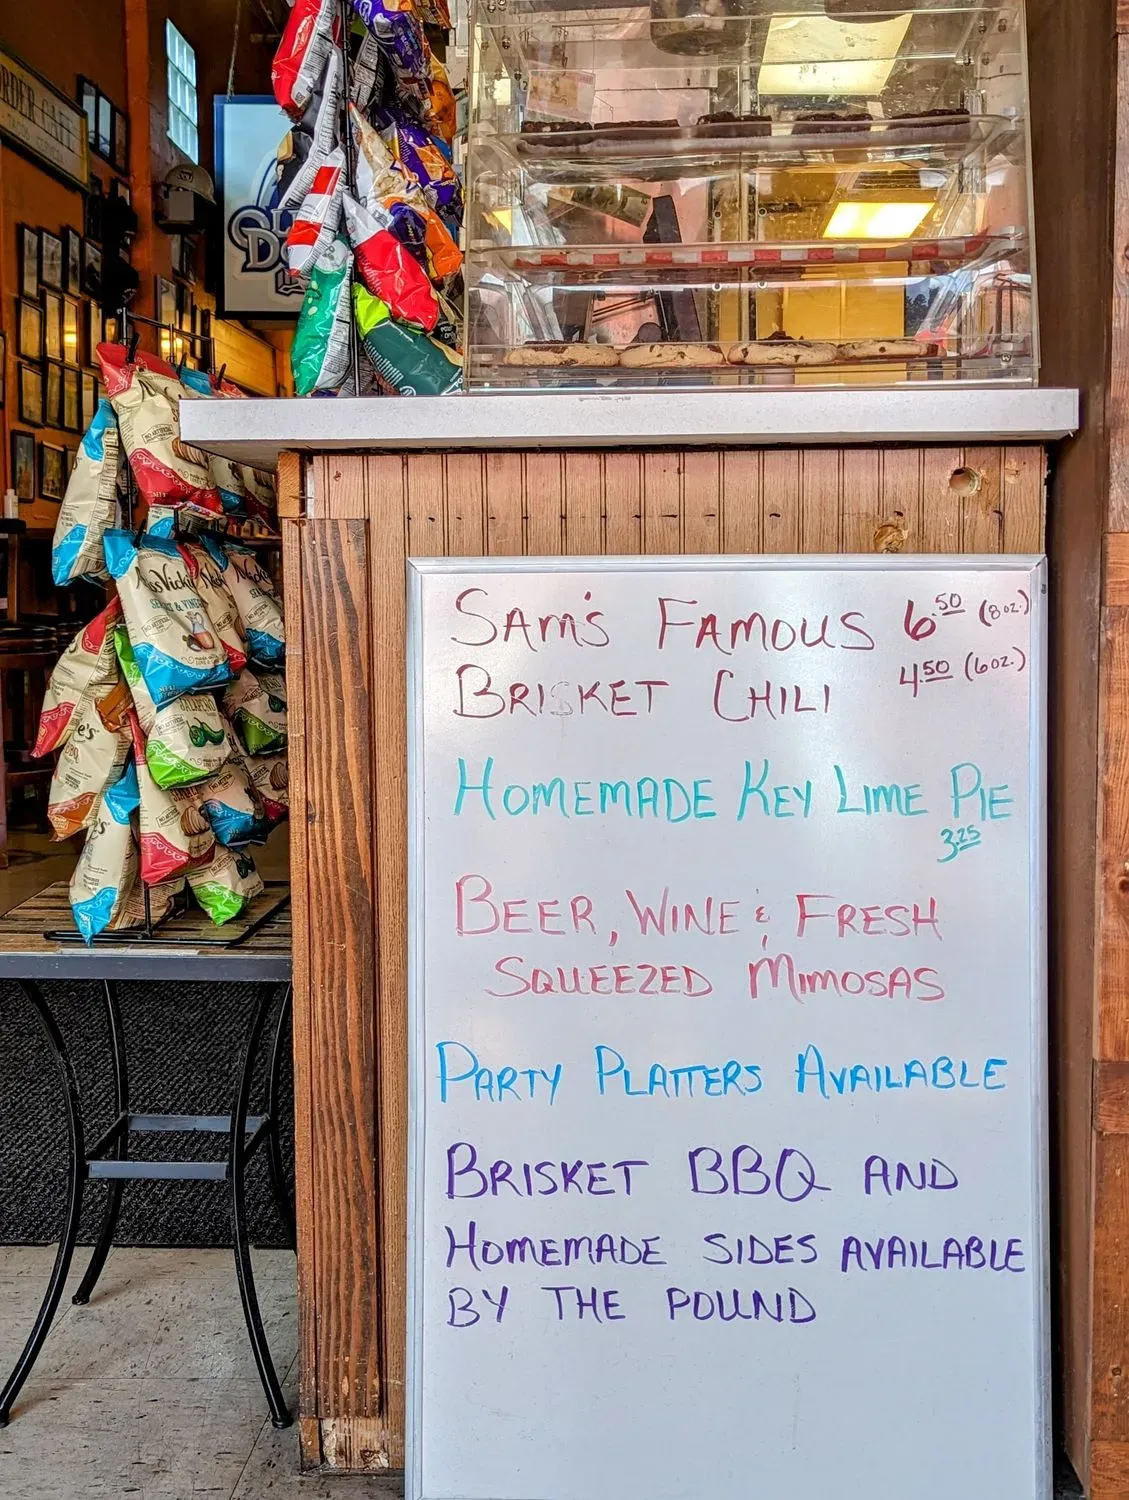 ORDER CAFE
Miss Vickie's
JALAPEÑO
SAM'S FAMOUS 6.50 (8oz.)
BRISKET CHILI 4.50 (6oz.)
HOMEMADE KEY LIME PIE
3.25
BEER, WINE & FRESH
SQUEEZED MIMOSAS
PARTY PLATTERS AVAILABLE
BRISKET BBQ AND
HOMEMADE SIDES AVAILABLE
BY THE POUND